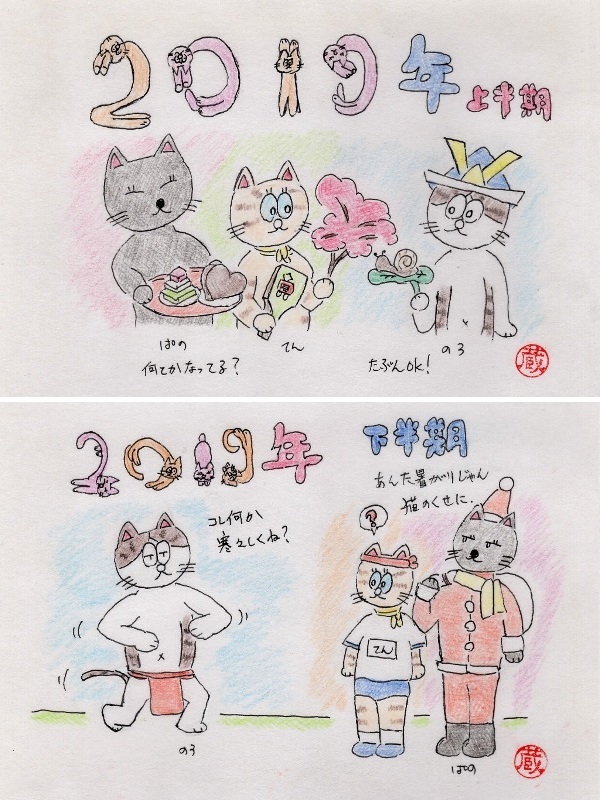 2019年 上半期
ぱの
てん
のろ
何とかなってる?
たぶんOK!
蔵
2019年 下半期
コレ何か
寒々しくね?
あんた暑がりじゃん
猫のくせに.
?
てん
のろ
ぱの
蔵